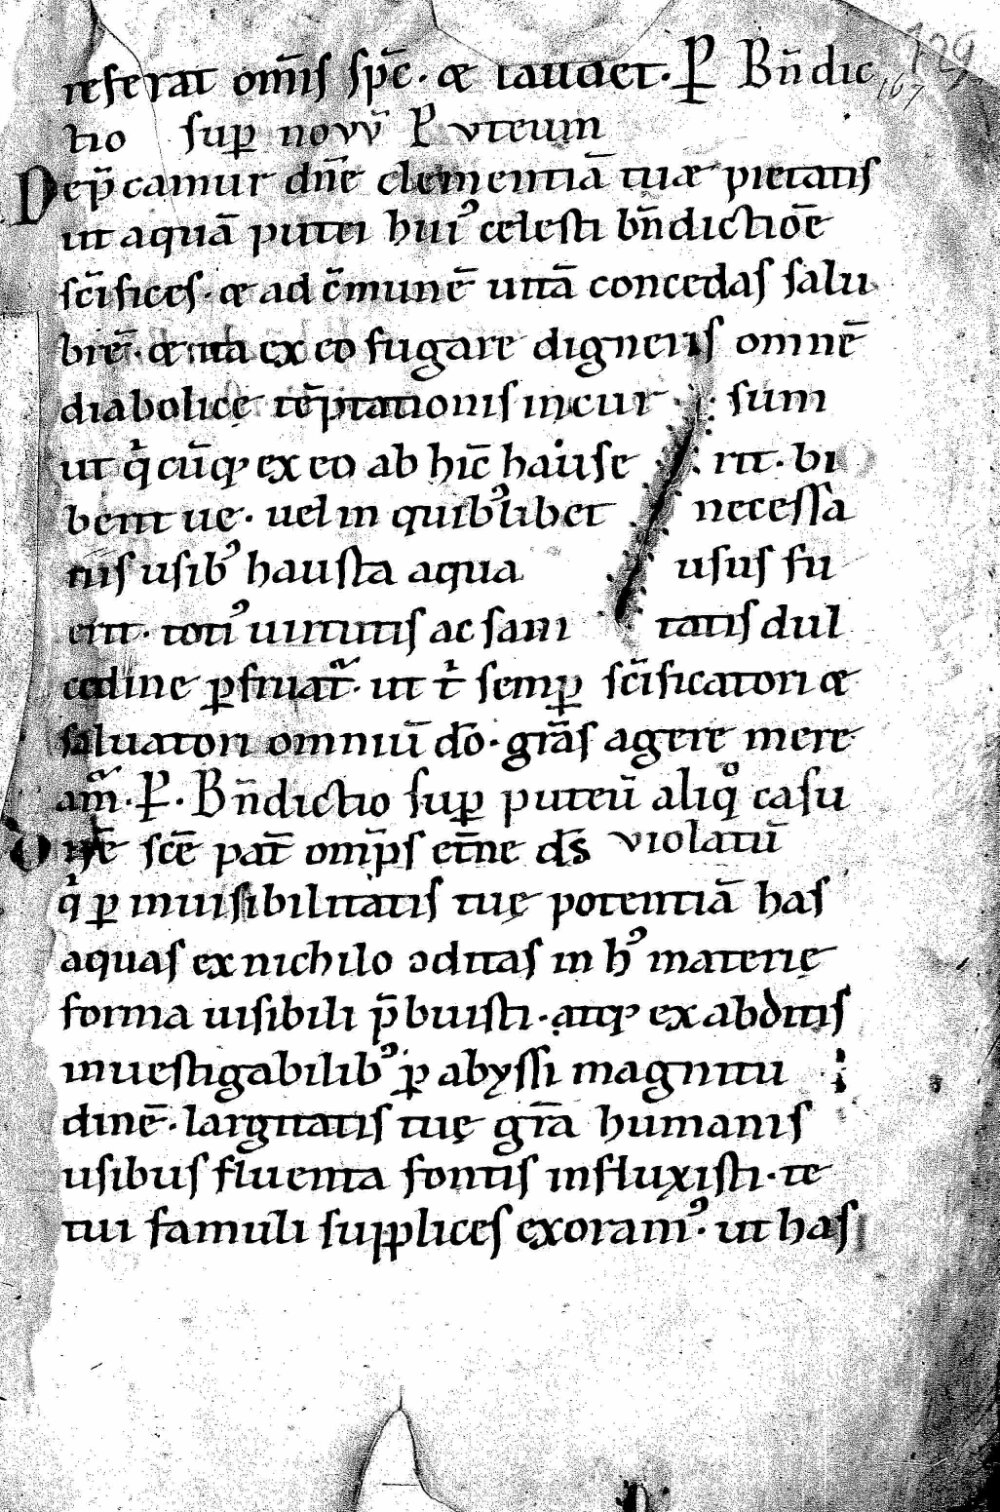 referat om̄is sp̄c · æ laudet · P̶ Bn̄dic
tio sup̱ novv̄ P vteum
Dep̄camur dn̄e clementiā tuæ pietatis
ut aquā putei huiꝰ celesti bn̄dictiōe
sc̄ifices · æ ad c̄munē uitā concedas salu
brē · æ ita ex eo fugare digneris omnē
diabolicę tēptationis incur sum
ut qͥ cūq; ex eo ab hīc hause rit · bi
berit ue · uel in quibꝰlibet necessa
riis usibꝰ hausta aqua usus fu
erit · totiꝰ uirtutis ac sani tatis dul
cedine ꝑfruat᷑ · ut tͥ semꝑ sc̄ificatori æ
saluatori omniū dō · grās agere mere
am᷑ · P̶ · Bn̄dictio suꝑ puteū aliqͦ casu
Dn̄e sc̄e pat̄ om̄ps et̄ne ds̄ violatū
qͥ ꝑ inuisibilitatis tuę potentiā has
aquas ex nichilo ↄditas in hꝰ materię
forma uisibili p̄buisti · atq; ex abditis
inuestigabilibꝰ ꝑ abyssi magnitu
dinē · largitatis tuę gr̄a humanis
usibus fluenta fontis influxisti · te
tui famuli supplices exoramꝰ · ut has
129
167